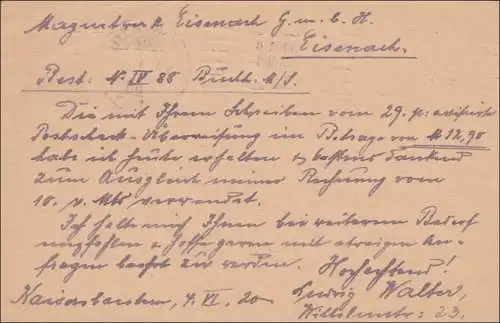 Magnetwerk Eisenach G.m.b.H.
Eisenach.
Best: No IV 88 Buchh. M/S.
Die mit Ihrem Schreiben vom 29. p. avisierte
Postscheck-Überweisung im Betrage von M 12,90
habe ich heute erhalten & bestens dankend
zum Ausgleich meiner Rechnung vom
10. v. Mts verwendet.
Ich halte mich Ihnen bei weiterem Bedarf
empfohlen & hoffe gerne mit etwaigen An-
fragen beehrt zu werden. Hochachtend!
Kaiserslautern, 4. VI. 20 Ludwig Walter,
Wilhelmstr: 23.